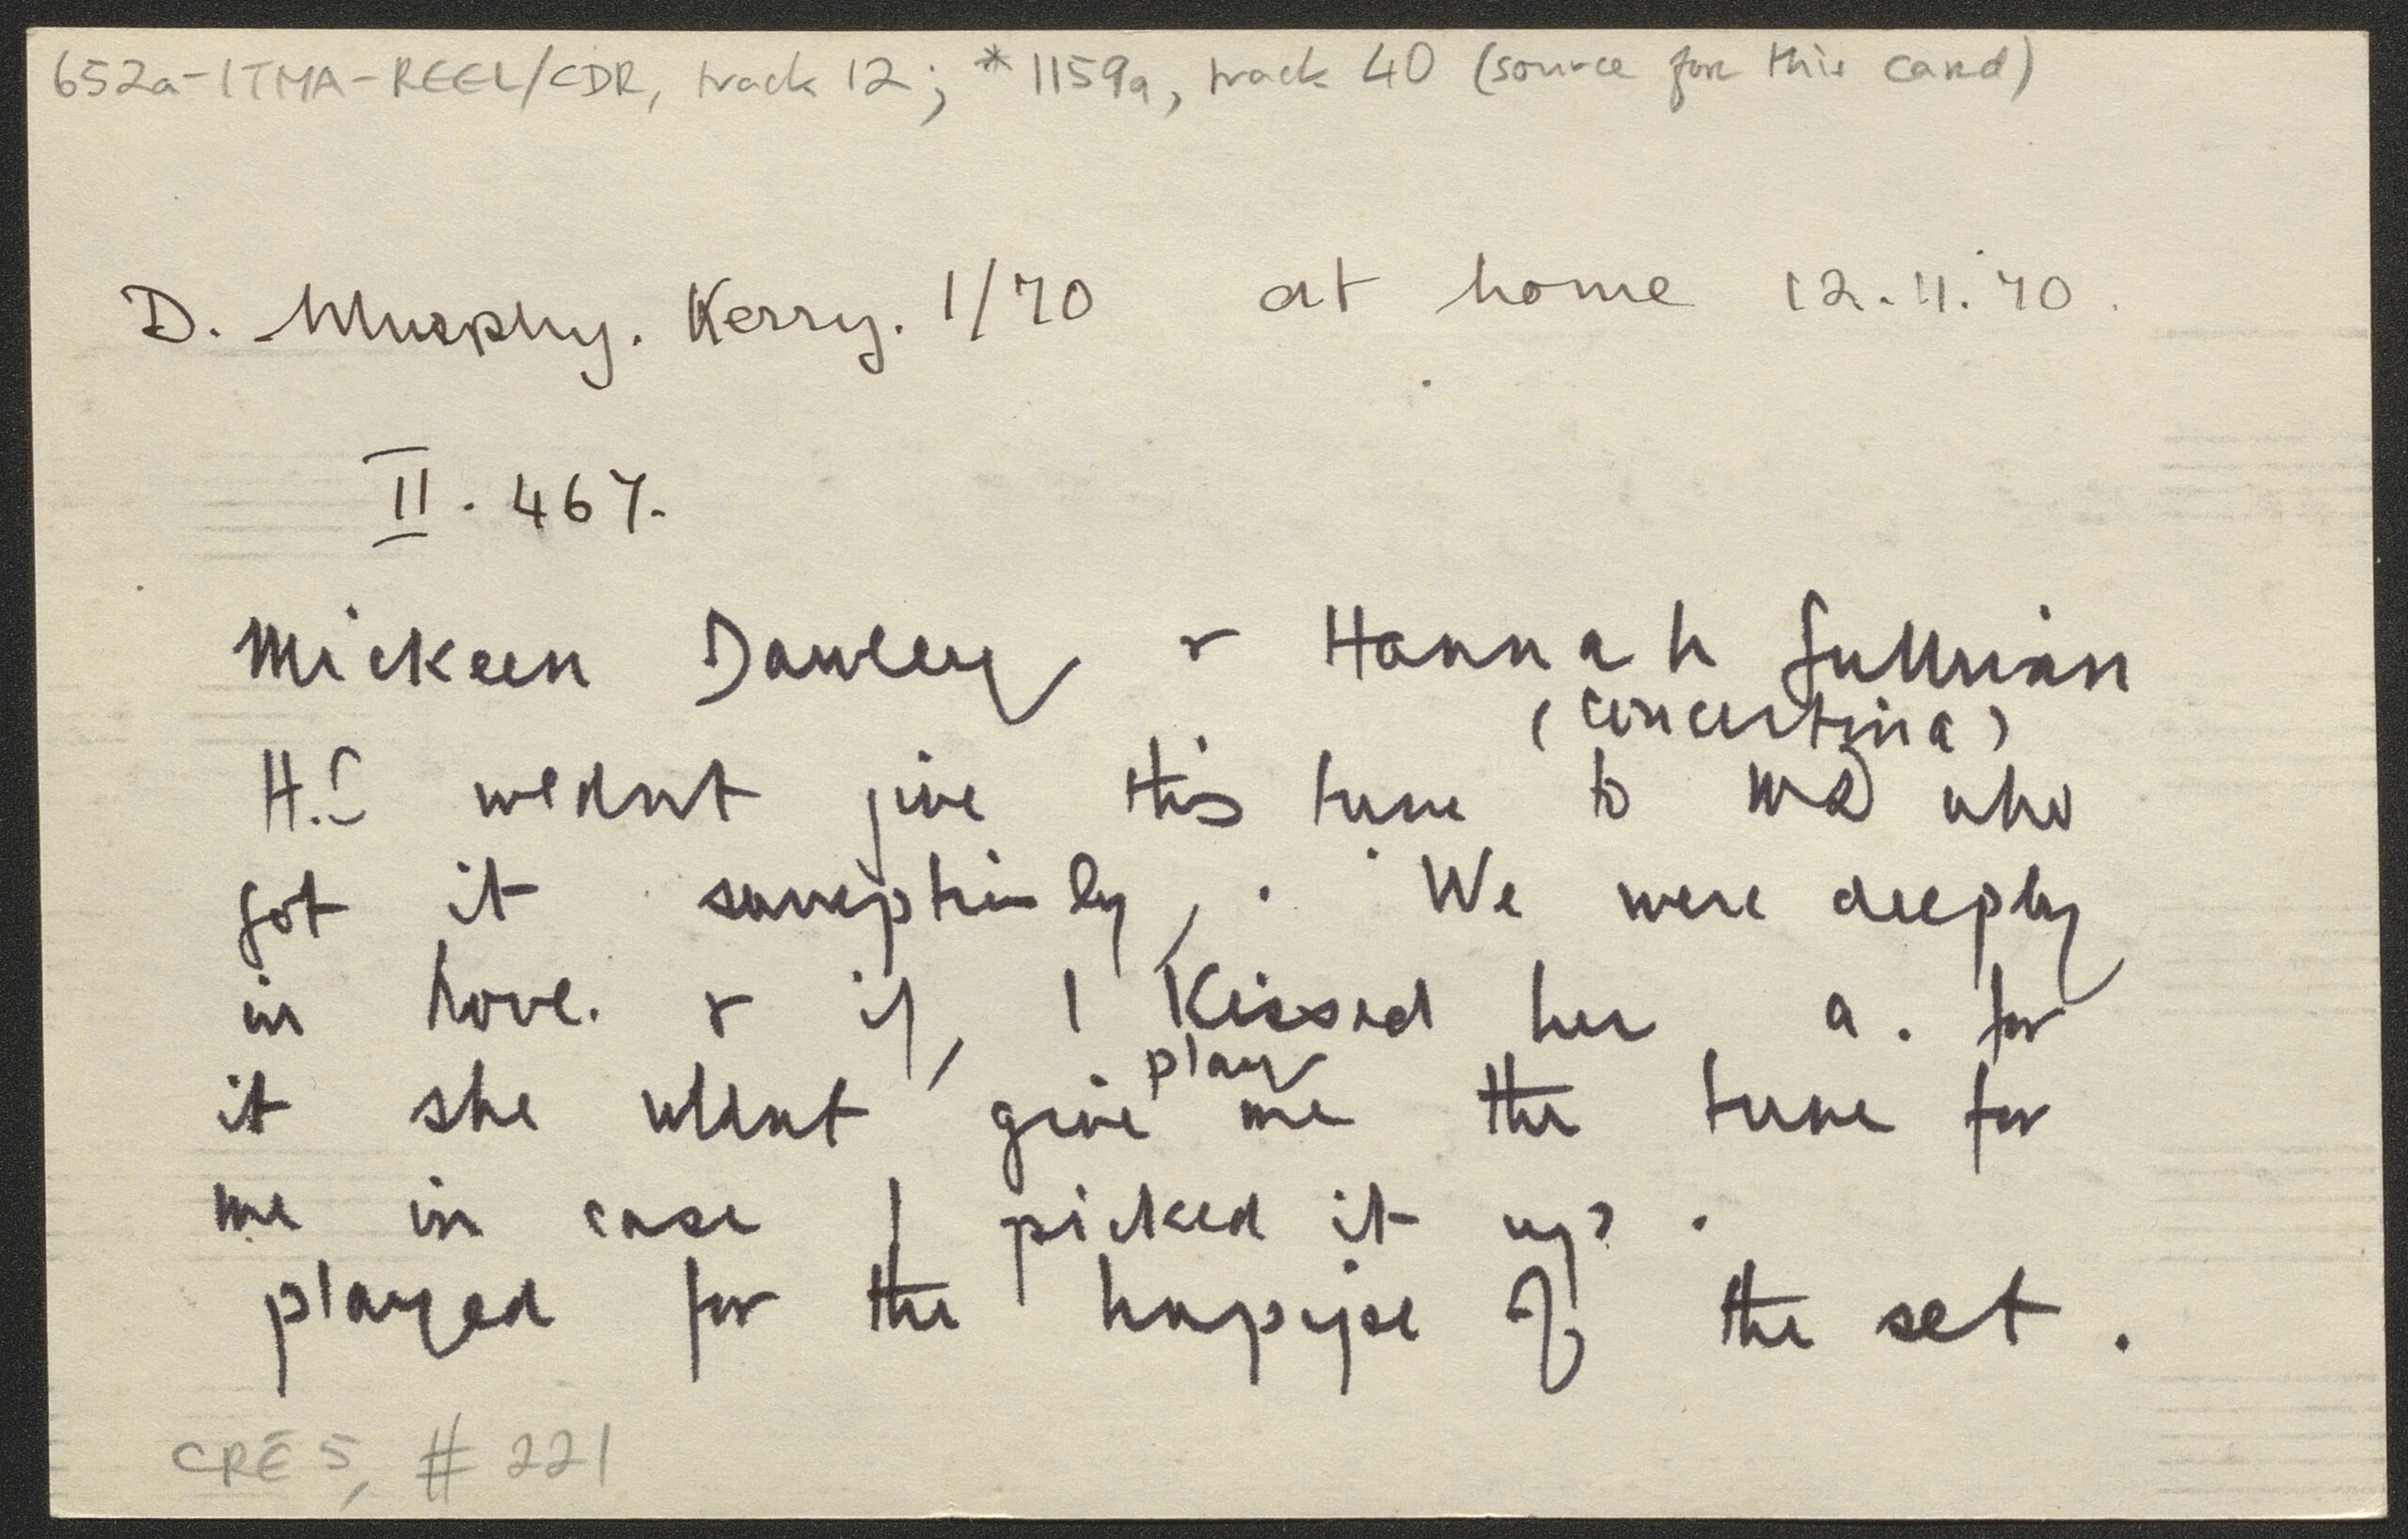 652a-ITMA-REEL/CDR, track 12; *1159a, track 40 (source for this card)
D. Murphy. Kerry. 1/70 at home 12.11.70.
II. 467.
Mickeen Dawley & Hannah Sullivan
(concertina)
H.S wldnt give this tune to MD who
got it . We were deeply
in love. & if I kissed her a. for
it she wldnt give play me the tune for
me in case I picked it up.
played for the hnpipe of the set.
CRÉ 5, # 221